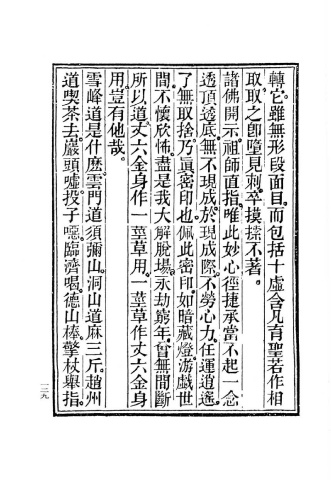 轉它。雖無形段面目。而包括十虛含凡有聖。若作相
取取之卽墮見刺。卒摸𢱢不著。
諸佛開示。祖師直指。唯此妙心。徑捷承當。不起一念
透頂透底。無不現成。於現成際。不勞心力。任運逍遙。
了無取捨。乃眞密印也。佩此密印。如暗藏燈。游戲世
間。不懷欣怖。盡是我大解脫場。永劫窮年。曾無間斷
所以道。丈六金身作一莖草用。一莖草作丈六金身
用。豈有他哉。
雪峰道是什麼。雲門道須彌山。洞山道麻三斤。趙州
道喫茶去。巖頭噓。投子噁。臨濟喝。德山棒。擎杖舉指。
一二九